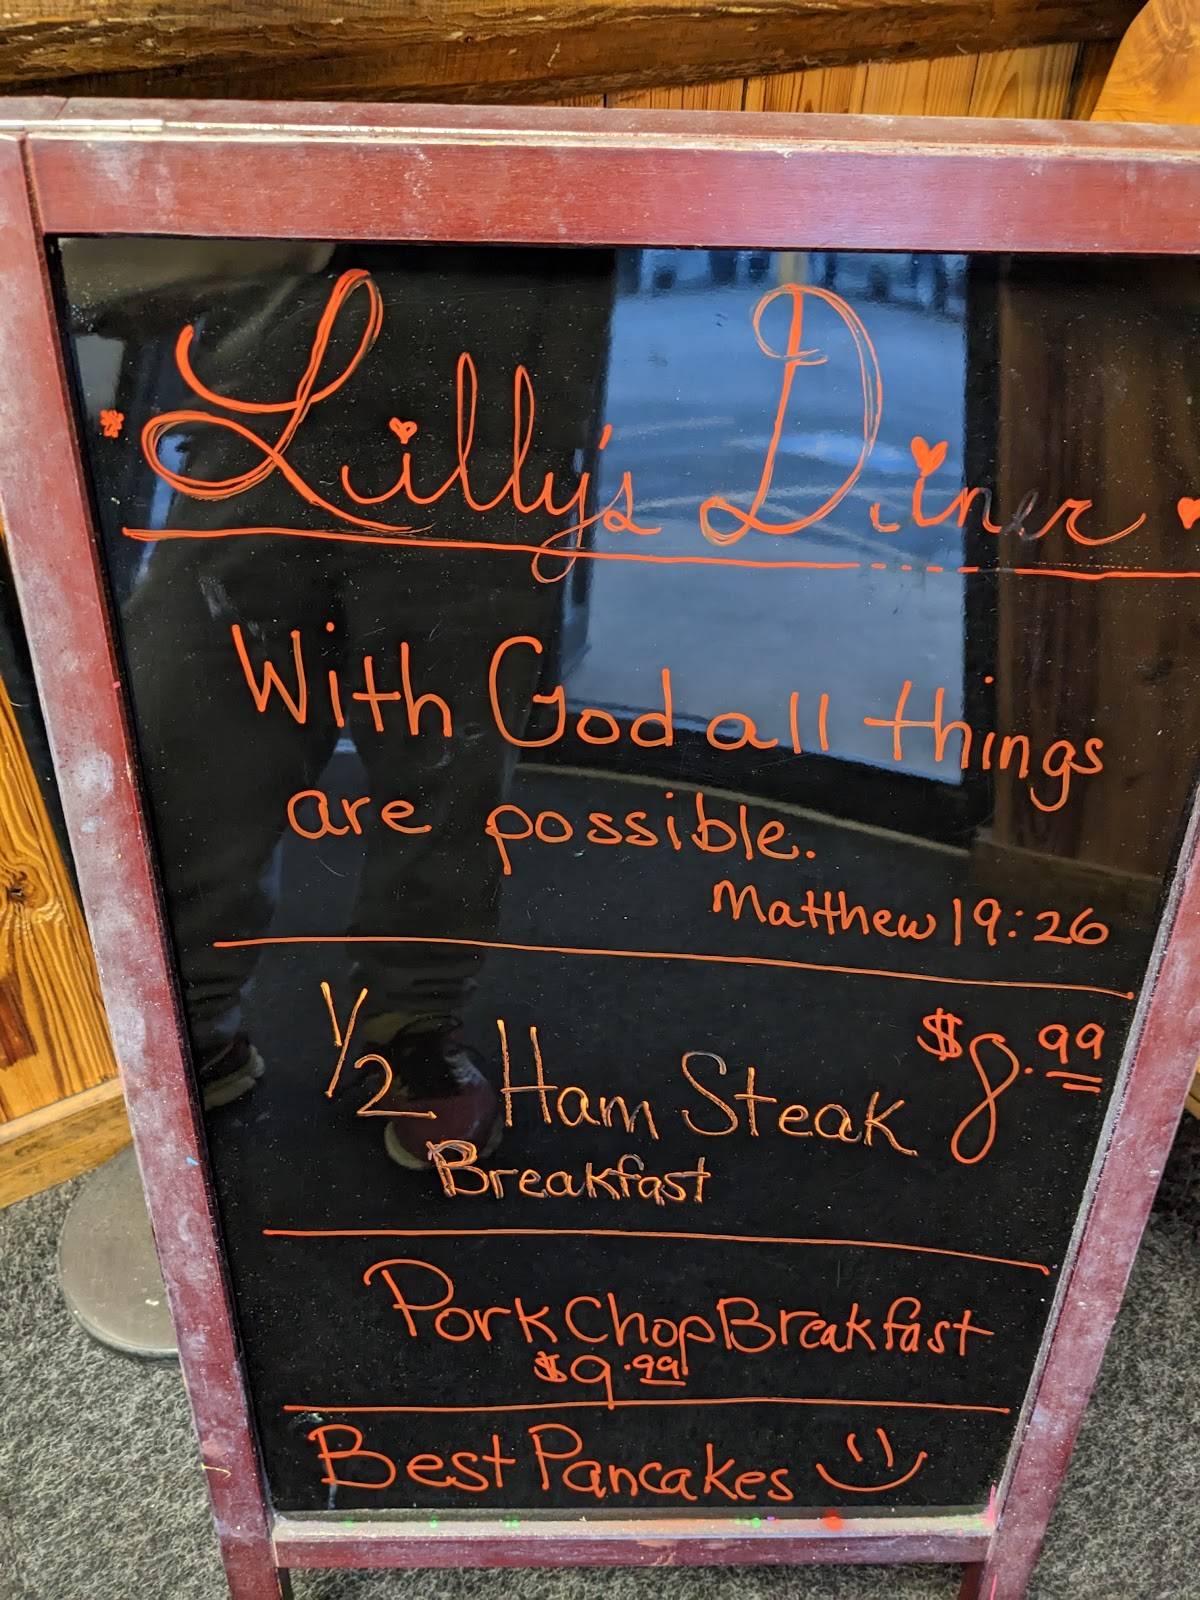 Lilly's Diner
With God all things
are possible.
Matthew 19:26
1/2 Ham Steak $8.99
Breakfast
Pork Chop Breakfast
$9.99
Best Pancakes